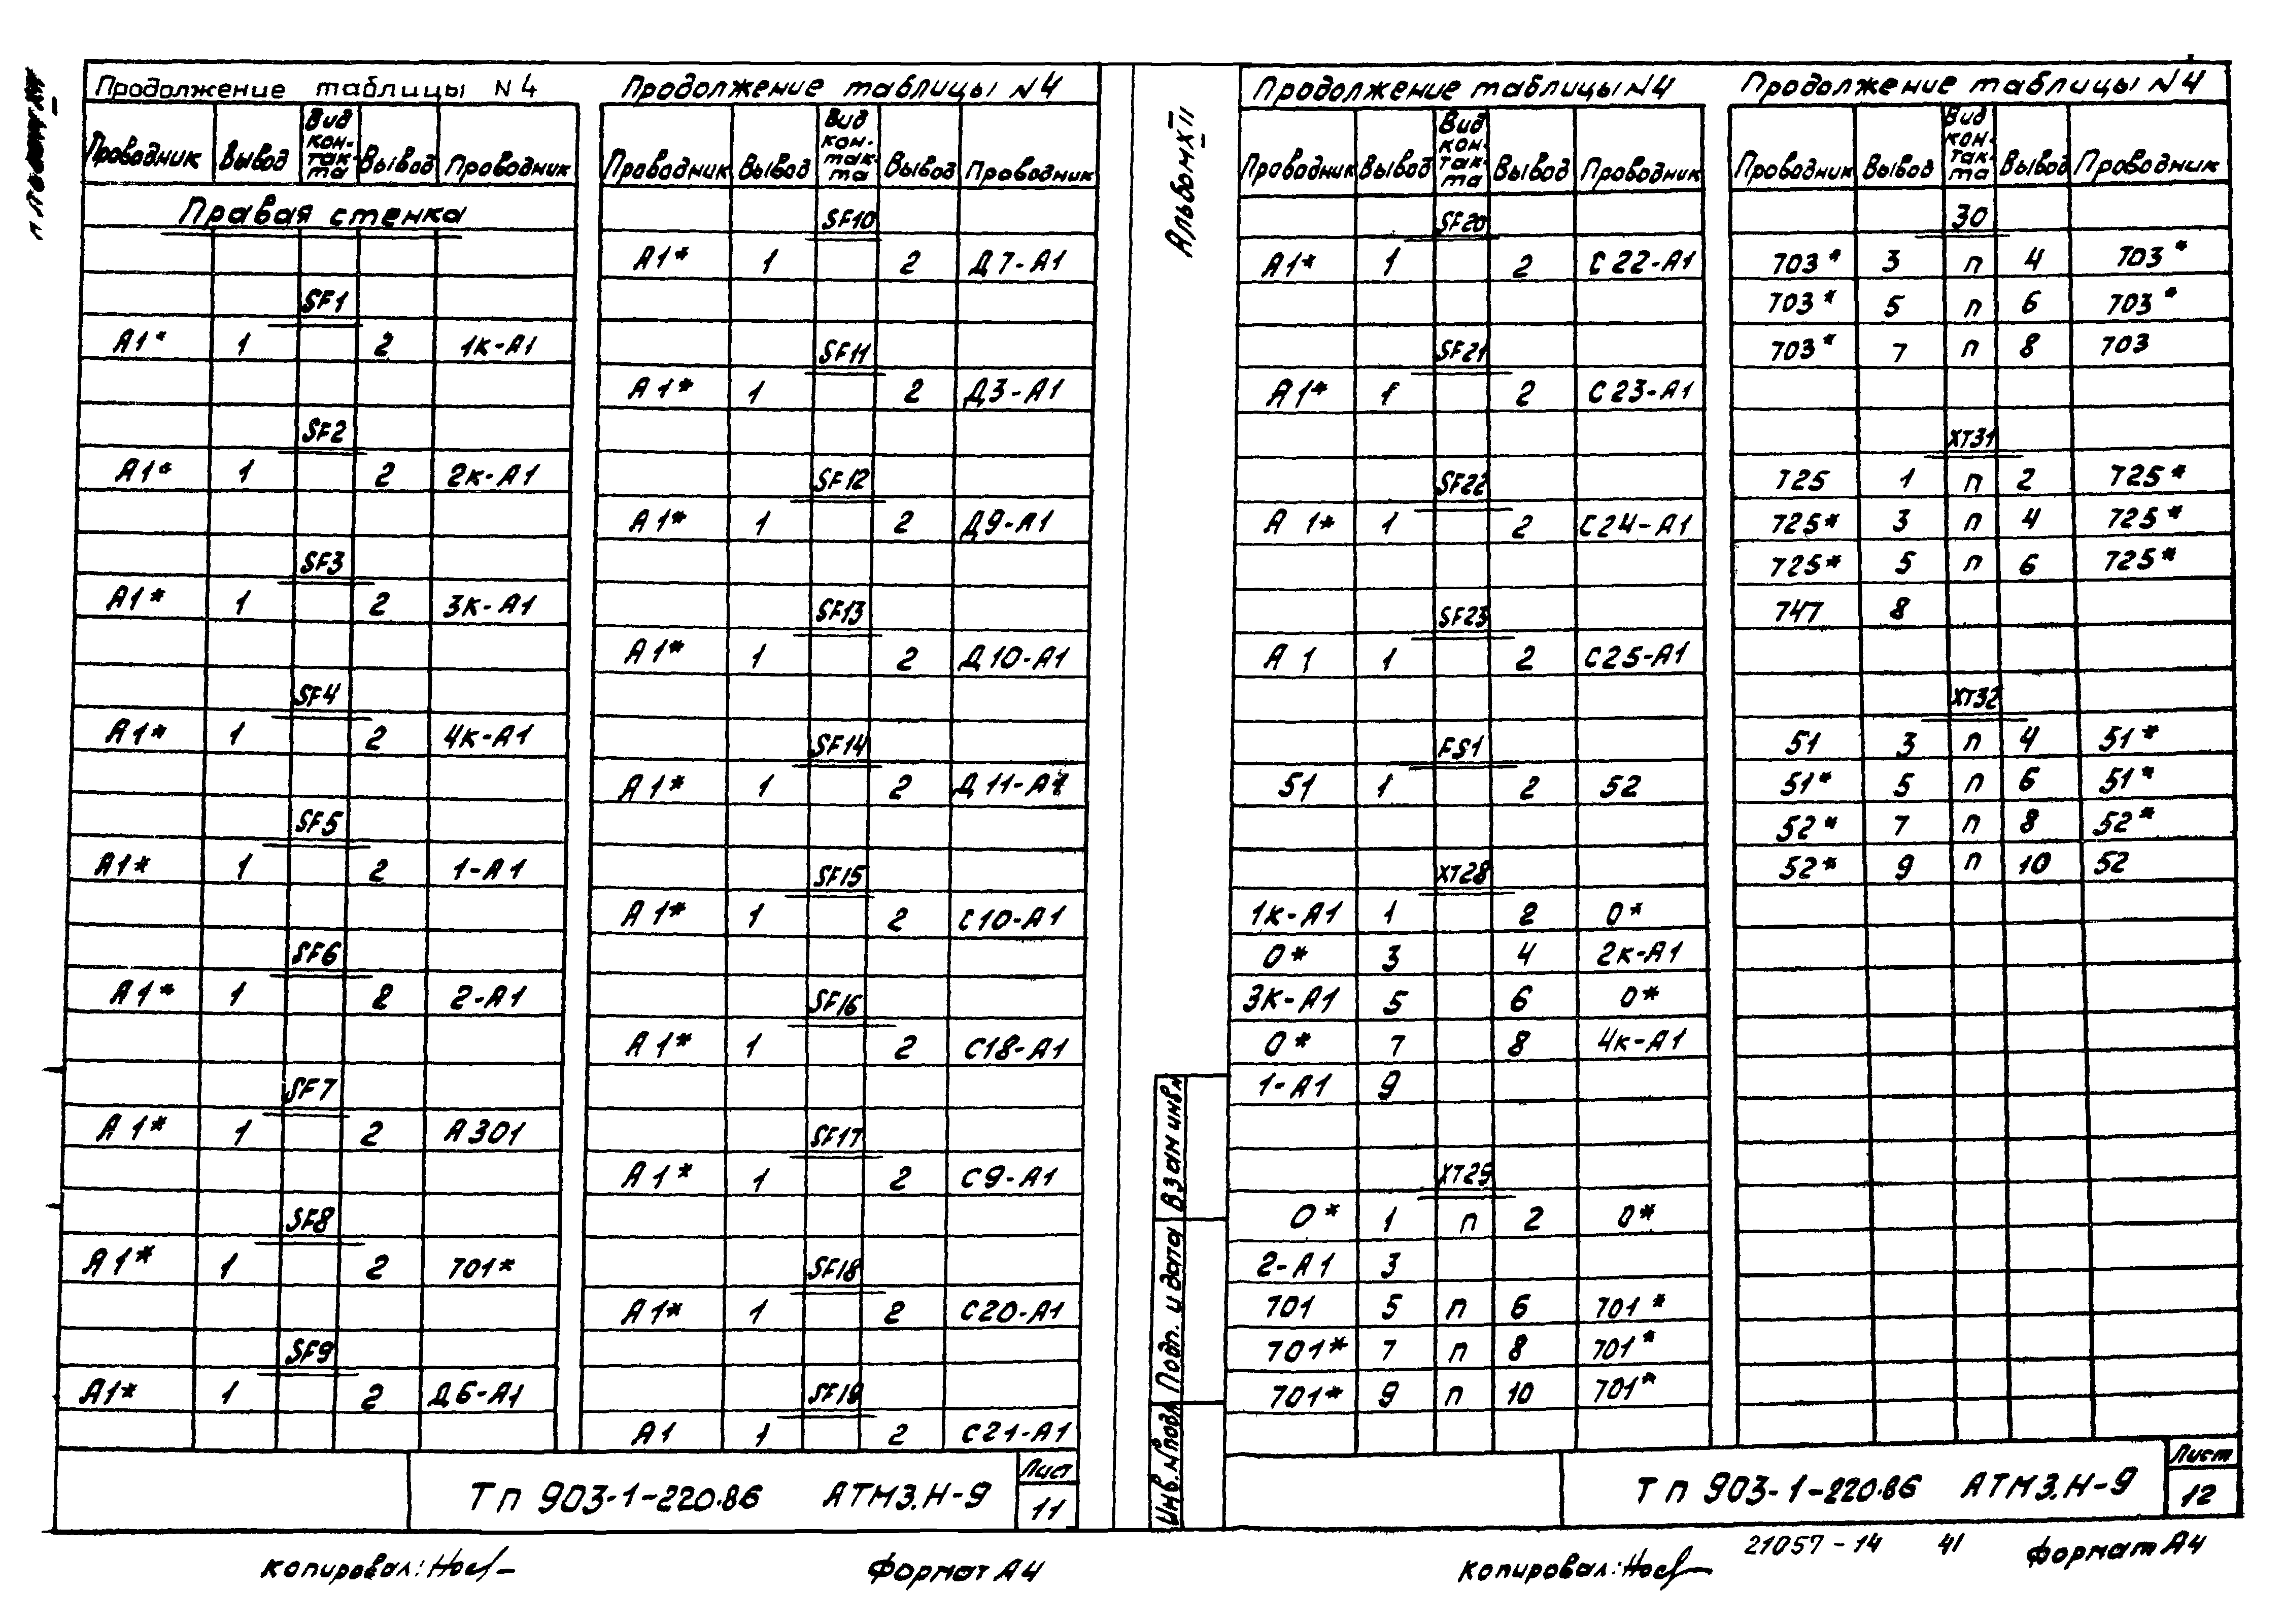 Продолжение таблицы N4
Проводник Вывод Вид кон-так-та Вывод Проводник
Правая стенка
SF1
А1* 1 2 1к-А1
SF2
А1* 1 2 2к-А1
SF3
А1* 1 2 3к-А1
SF4
А1* 1 2 4к-А1
SF5
А1* 1 2 1-А1
SF6
А1* 1 2 2-А1
SF7
А1* 1 2 А301
SF8
А1* 1 2 701*
SF9
А1* 1 2 Д6-А1
Продолжение таблицы N4
Проводник Вывод Вид кон-так-та Вывод Проводник
SF10
А1* 1 2 Д7-А1
SF11
А1* 1 2 Д3-А1
SF12
А1* 1 2 Д9-А1
SF13
А1* 1 2 Д10-А1
SF14
А1* 1 2 Д11-А1
SF15
А1* 1 2 С10-А1
SF16
А1* 1 2 С18-А1
SF17
А1* 1 2 С9-А1
SF18
А1* 1 2 С20-А1
SF19
А1 1 2 С21-А1
ТП 903-1-220.86 АТМ3.Н-9
Лист
11
Копировал:
Формат А4
Альбом XII
Взам инв.N
Подп. и дата
Инв.N подл
Продолжение таблицы N4
Проводник Вывод Вид кон-так-та Вывод Проводник
SF20
А1* 1 2 С22-А1
SF21
А1* 1 2 С23-А1
SF22
А1* 1 2 С24-А1
SF23
А1 1 2 С25-А1
FS1
51 1 2 52
XT28
1к-А1 1 2 0*
0* 3 4 2к-А1
3к-А1 5 6 0*
0* 7 8 4к-А1
1-А1 9
XT29
0* 1 п 2 0*
2-А1 3
701 5 п 6 701*
701* 7 п 8 701*
701* 9 п 10 701*
Продолжение таблицы N4
Проводник Вывод Вид кон-так-та Вывод Проводник
30
703* 3 п 4 703*
703* 5 п 6 703*
703* 7 п 8 703
XT31
725 1 п 2 725*
725* 3 п 4 725*
725* 5 п 6 725*
747 8
XT32
51 3 п 4 51*
51* 5 п 6 51*
52* 7 п 8 52*
52* 9 п 10 52
ТП 903-1-220.86 АТМ3.Н-9
Лист
12
Копировал:
21057-14 41
Формат А4